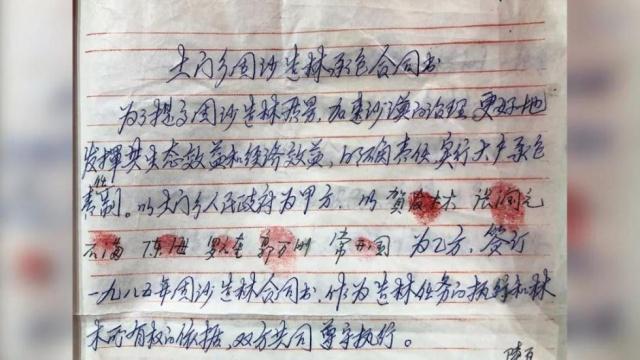 土门乡固沙造林承包合同书
为了提高固沙造林质量,加速沙漠的治理,更好地
发挥其生态效益和经济效益,明确责任,实行大户承包
责任制。以土门乡人民政府为甲方,以 贺 张润元
罗 郭万刚 常开国 为乙方,签订
一九八五年固沙造林合同书,作为造林任务的执行和林
木所有权的依据,双方共同遵守执行。